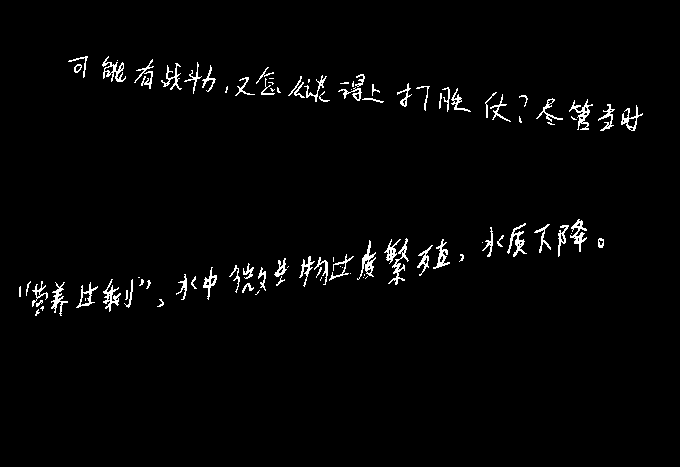 可能有战斗力，又怎么谈得上打胜仗？尽管当时
“营养过剩”，水中微生物过度繁殖，水质下降。